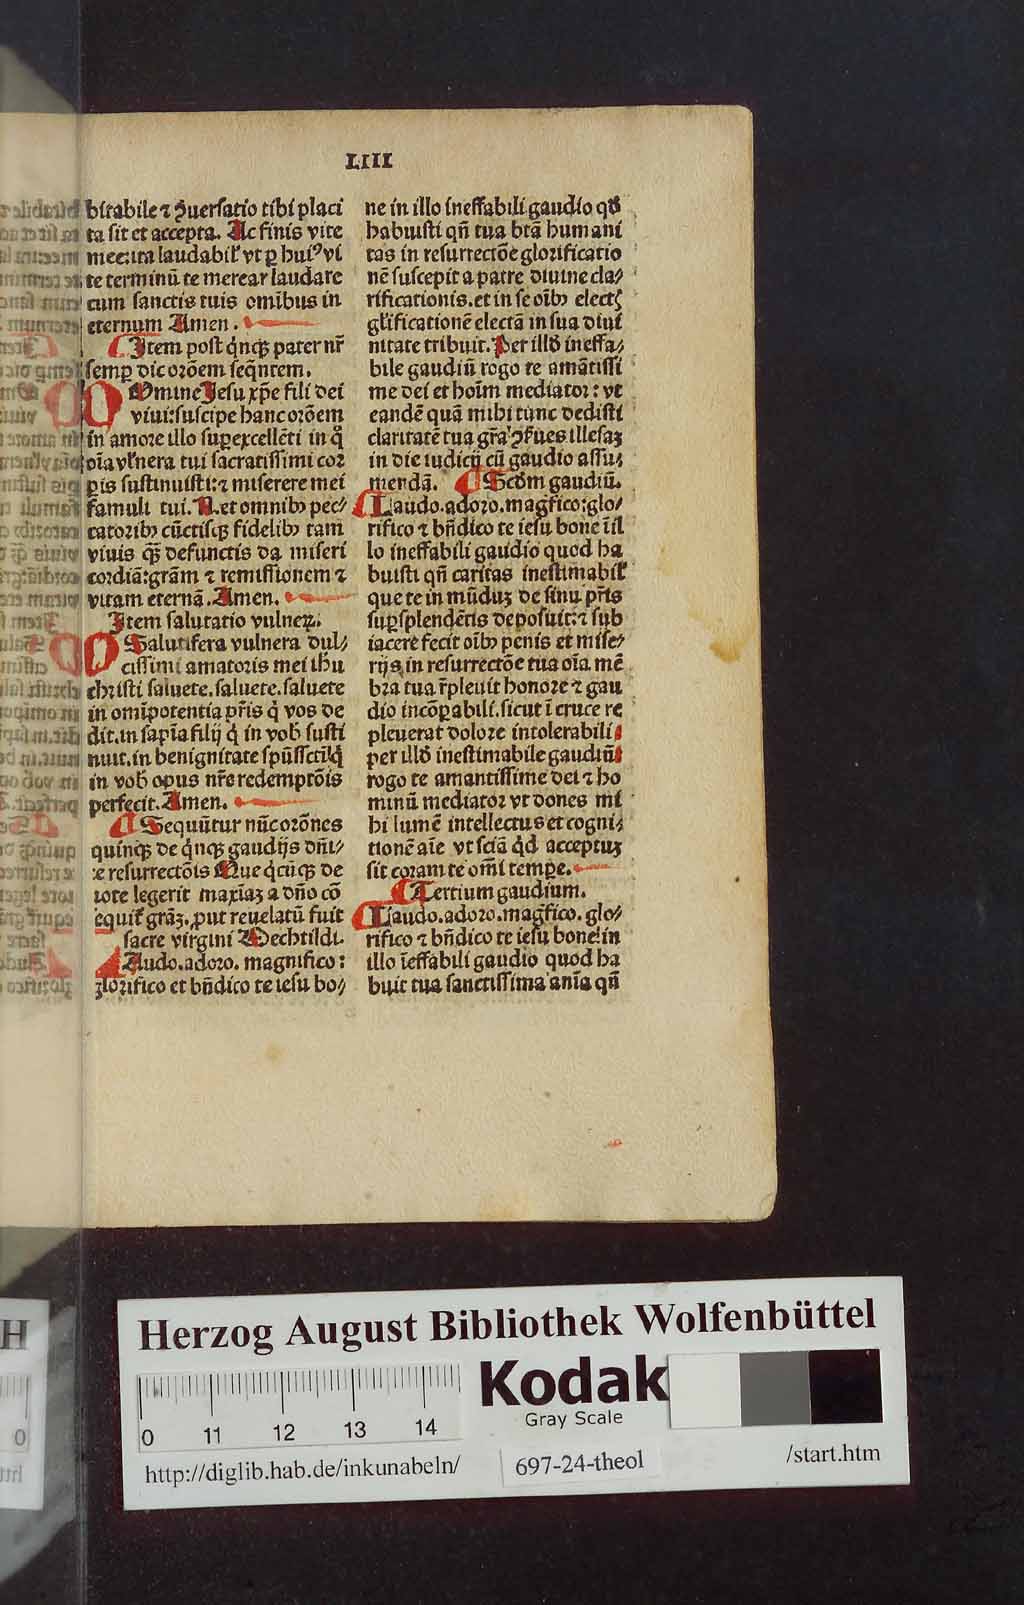 LIII
bitabile ⁊ ꝯuersatio tibi placi
ta sit et accepta. Ac finis vite
mee: ita laudabil̛ vt ꝑ huiꝰ vi
te terminū te merear laudare
cum sanctis tuis omībus in
eternum Amen.
Item post q̇nqꝫ pater nr̄
semꝑ dic orōem seq̄ntem.
Omine Jesu xp̄e fili dei
viui: suscipe hanc orōem
in amore illo suꝑexcellēti in q̊
oīa vl̛nera tui sacratissimi cor
ꝑis sustinuisti: ⁊ miserere mei
famuli tui. N. et omnibꝫ pec⸗
catoribꝫ cūctisqꝫ fidelibꝫ tam
viuis qꝫ̄ defunctis da miseri
cordiā: grām ⁊ remissionem ⁊
vitam eternā. Amen.
Item salutatio vulneꝝ.
Salutifera vulnera dul⸗
cissimi amatoris mei ihū
christi saluete. saluete. saluete
in omīpotentia pr̄is q̇ vos de
dit. in sapīa filij q̇ in vob̄ susti
nuit. in benignitate spūssctī q̇
in vob̄ opus nr̄e redemptōis
perfecit. Amen.
Sequūtur nūc orōnes
quinqꝫ de q̇nqꝫ gaudijs dn̄i⸗
e resurrectōis Que q̇cūqꝫ de
uote legerit maxīaꝫ a dn̄o cō
equit̛ grāꝫ. ꝓut reuelatū fuit
sacre virgini Mechtildi.
Audo. adoro. magnifico:
glorifico et bn̄dico te iesu bo⸗
ne in illo ineffabili gaudio qđ
habuisti qn̄ tua btā humani
tas in resurrectōe glorificatio
nē suscepit a patre diuine cla⸗
rificationis. et in se oībꝫ elect̛
gl̛ificationē electā in sua diui
nitate tribuit. Per illđ ineffa⸗
bile gaudiū rogo te amātissi
me dei et hoīm mediator: vt
eandē quā mihi tunc dedisti
claritatē tua gr̄a ꝯẜues illesaꝫ
in die iudicij cū gaudio assu⸗
mendā. Scđm gaudiū.
Laudo. adoro. magn̄fico: glo⸗
rifico ⁊ bn̄dico te iesu bone ī il
lo ineffabili gaudio quod ha
buisti qn̄ caritas inestimabil̛
que te in mūduꝫ de sinu pr̄is
suꝑsplendētis deposuit: ⁊ sub
iacere fecit oībꝫ penis et mise⸗
rijs in resurrectōe tua oīa mē
bra tua r̄pleuit honore ⁊ gau
dio incōꝑabili. sicut ī cruce re
pleuerat dolore intolerabili
per illđ inestimabile gaudiū
rogo te amantissime dei ⁊ ho
minū mediator vt dones mi
hi lumē intellectus et cogni⸗
tionē aīe vt sciā q̇d acceptuꝫ
sit coram te om̄i tempe.
Tertium gaudium.
Laudo. adoro. magn̄fico. glo⸗
rifico ⁊ bn̄dico te iesu bone: in
illo īeffabili gaudio quod ha
buit tua sanctissima anīa qn̄
Herzog August Bibliothek Wolfenbüttel
Kodak
Gray Scale
0 11 12 13 14
http://diglib.hab.de/inkunabeln/
697-24-theol
/start.htm